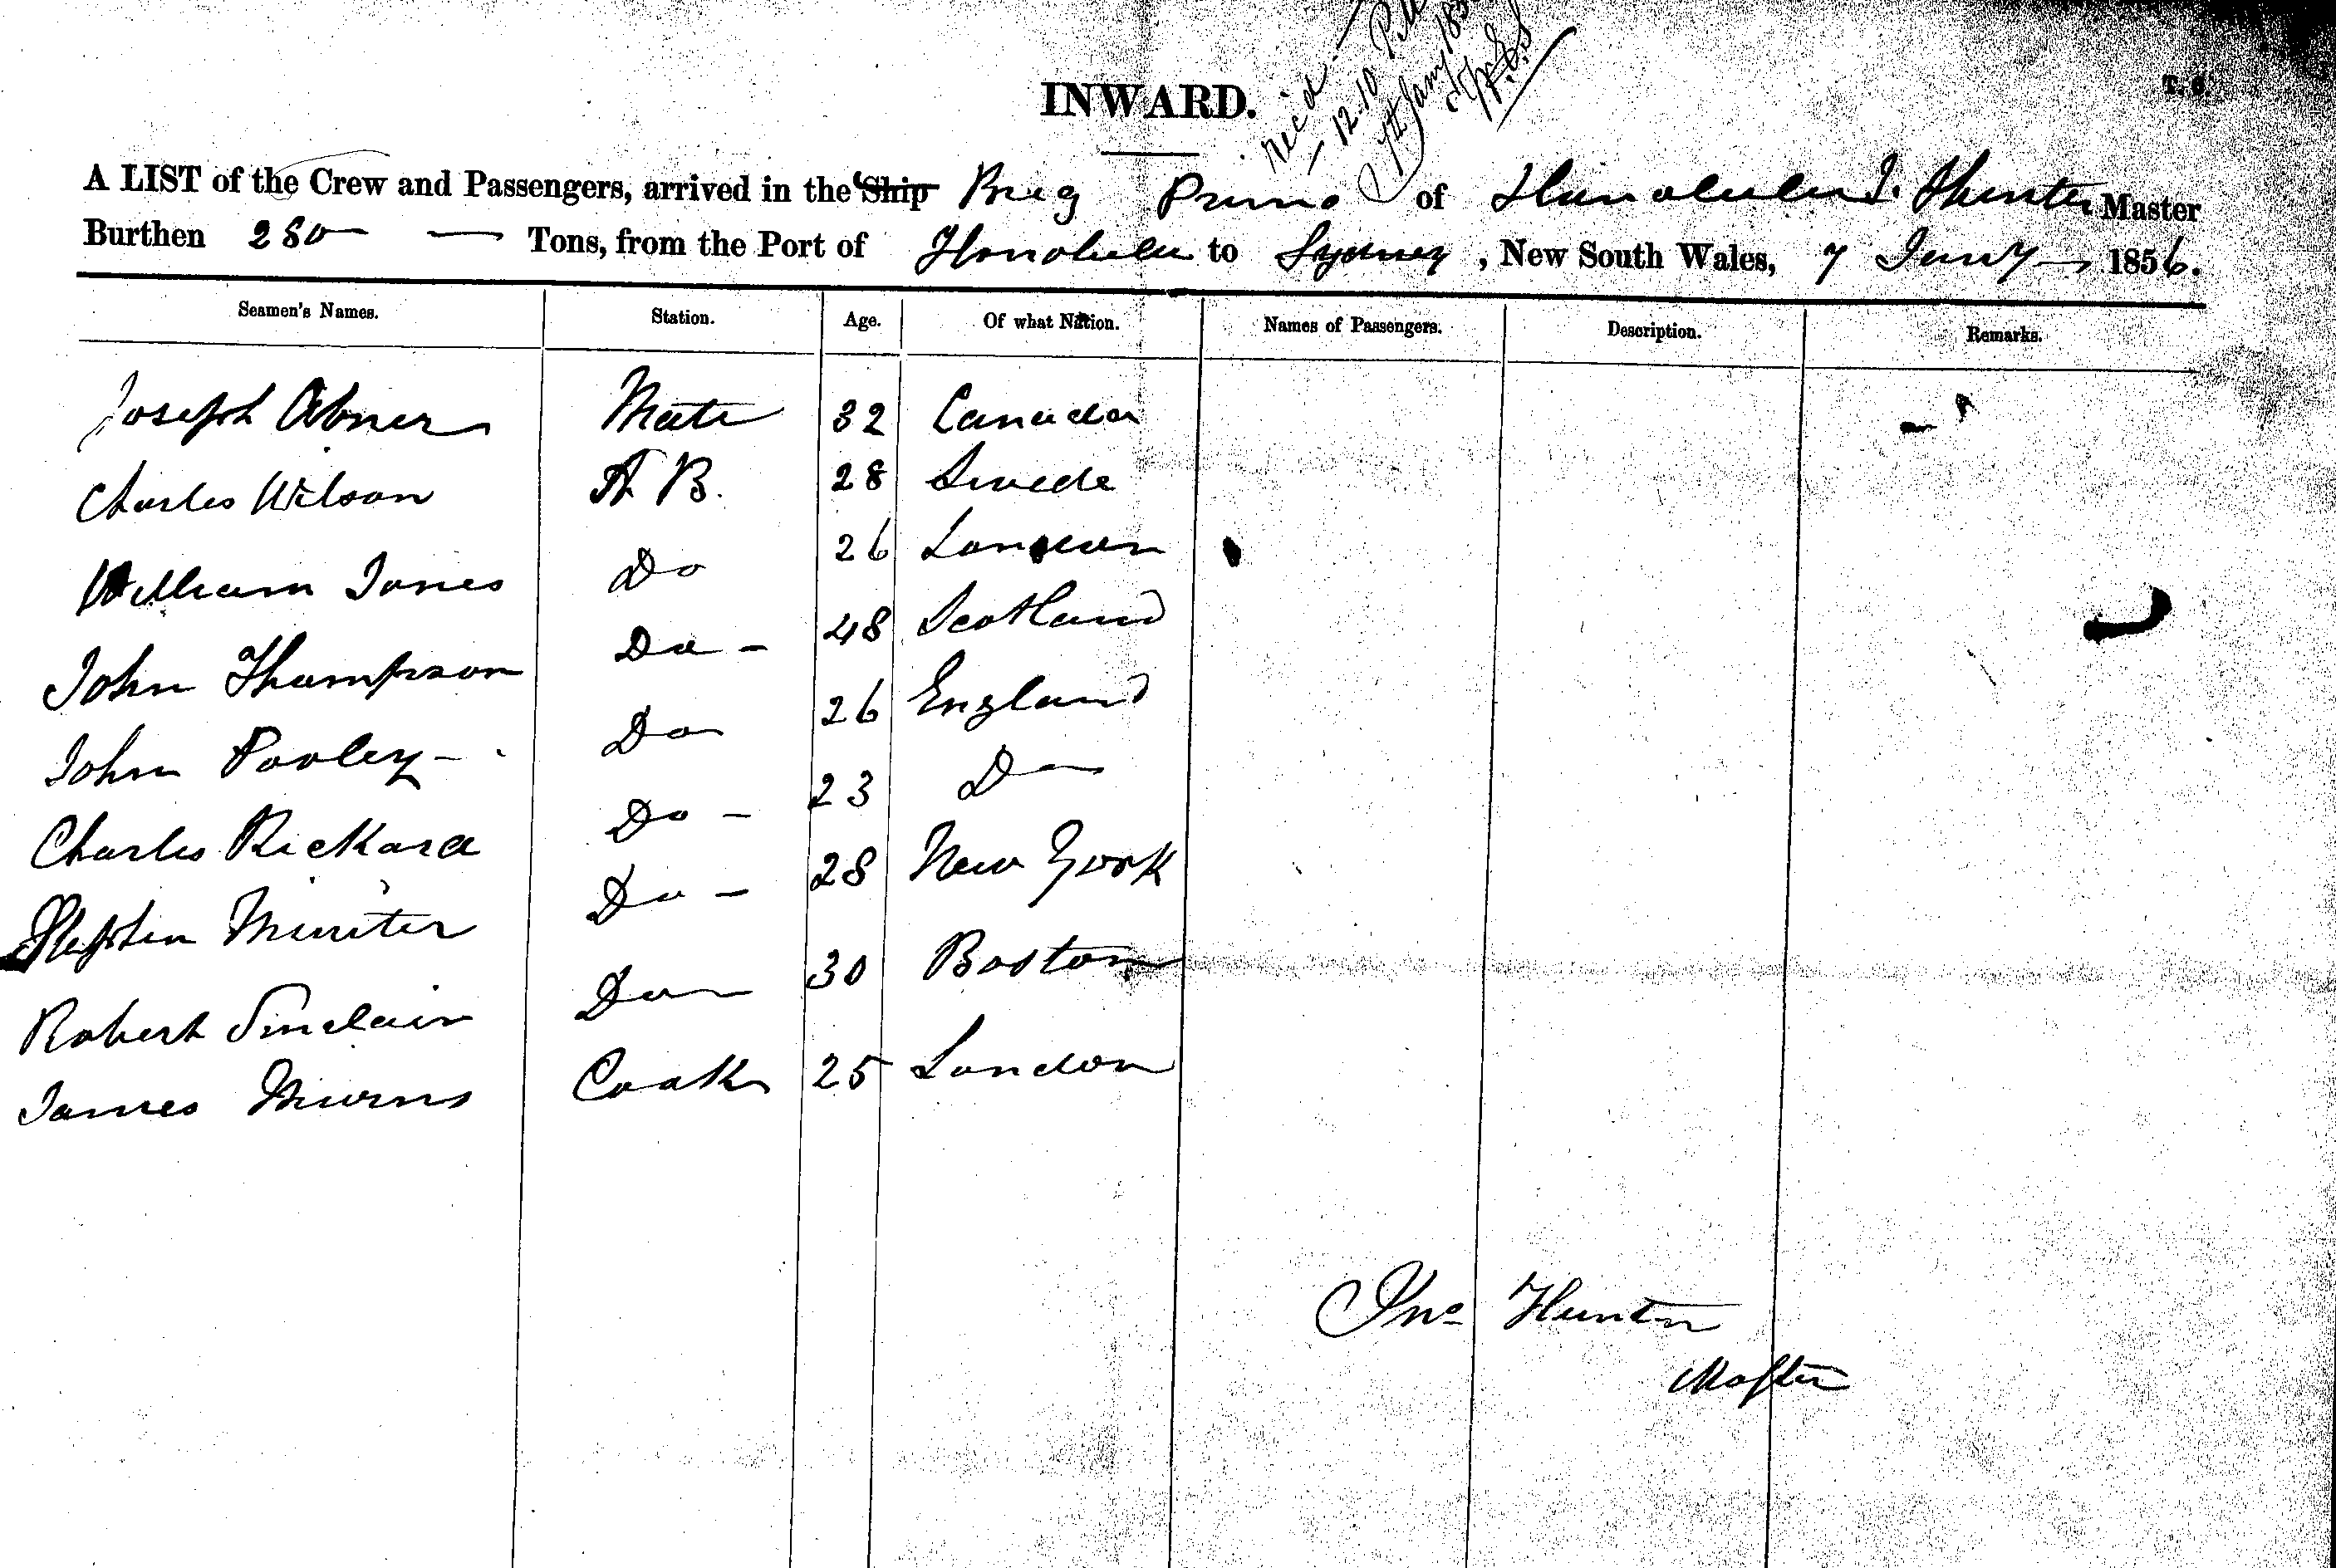 Rec'd
12.10 P.M.
7th Jany 185
INWARD.
A LIST of the Crew and Passengers, arrived in the Ship Brig Primo of Honolulu J. Hunter Master
Burthen 280 — Tons, from the Port of Honolulu to Sydney, New South Wales, 7 Jany 1856.
Seamen's Names. Station. Age. Of what Nation. Names of Passengers. Description. Remarks.
Joseph Abner Mate 32 Canada
Charles Wilson A B. 28 Swede
William Jones Do 26 London
John Thompson Do - 48 Scotland
John Pooley - Do 26 England
Charles Rickard Do - 23 Do
Stephen Munter Do - 28 New York
Robert Sinclair Do 30 Boston
James Murns Cook 25 London
Jno Hunter
Master